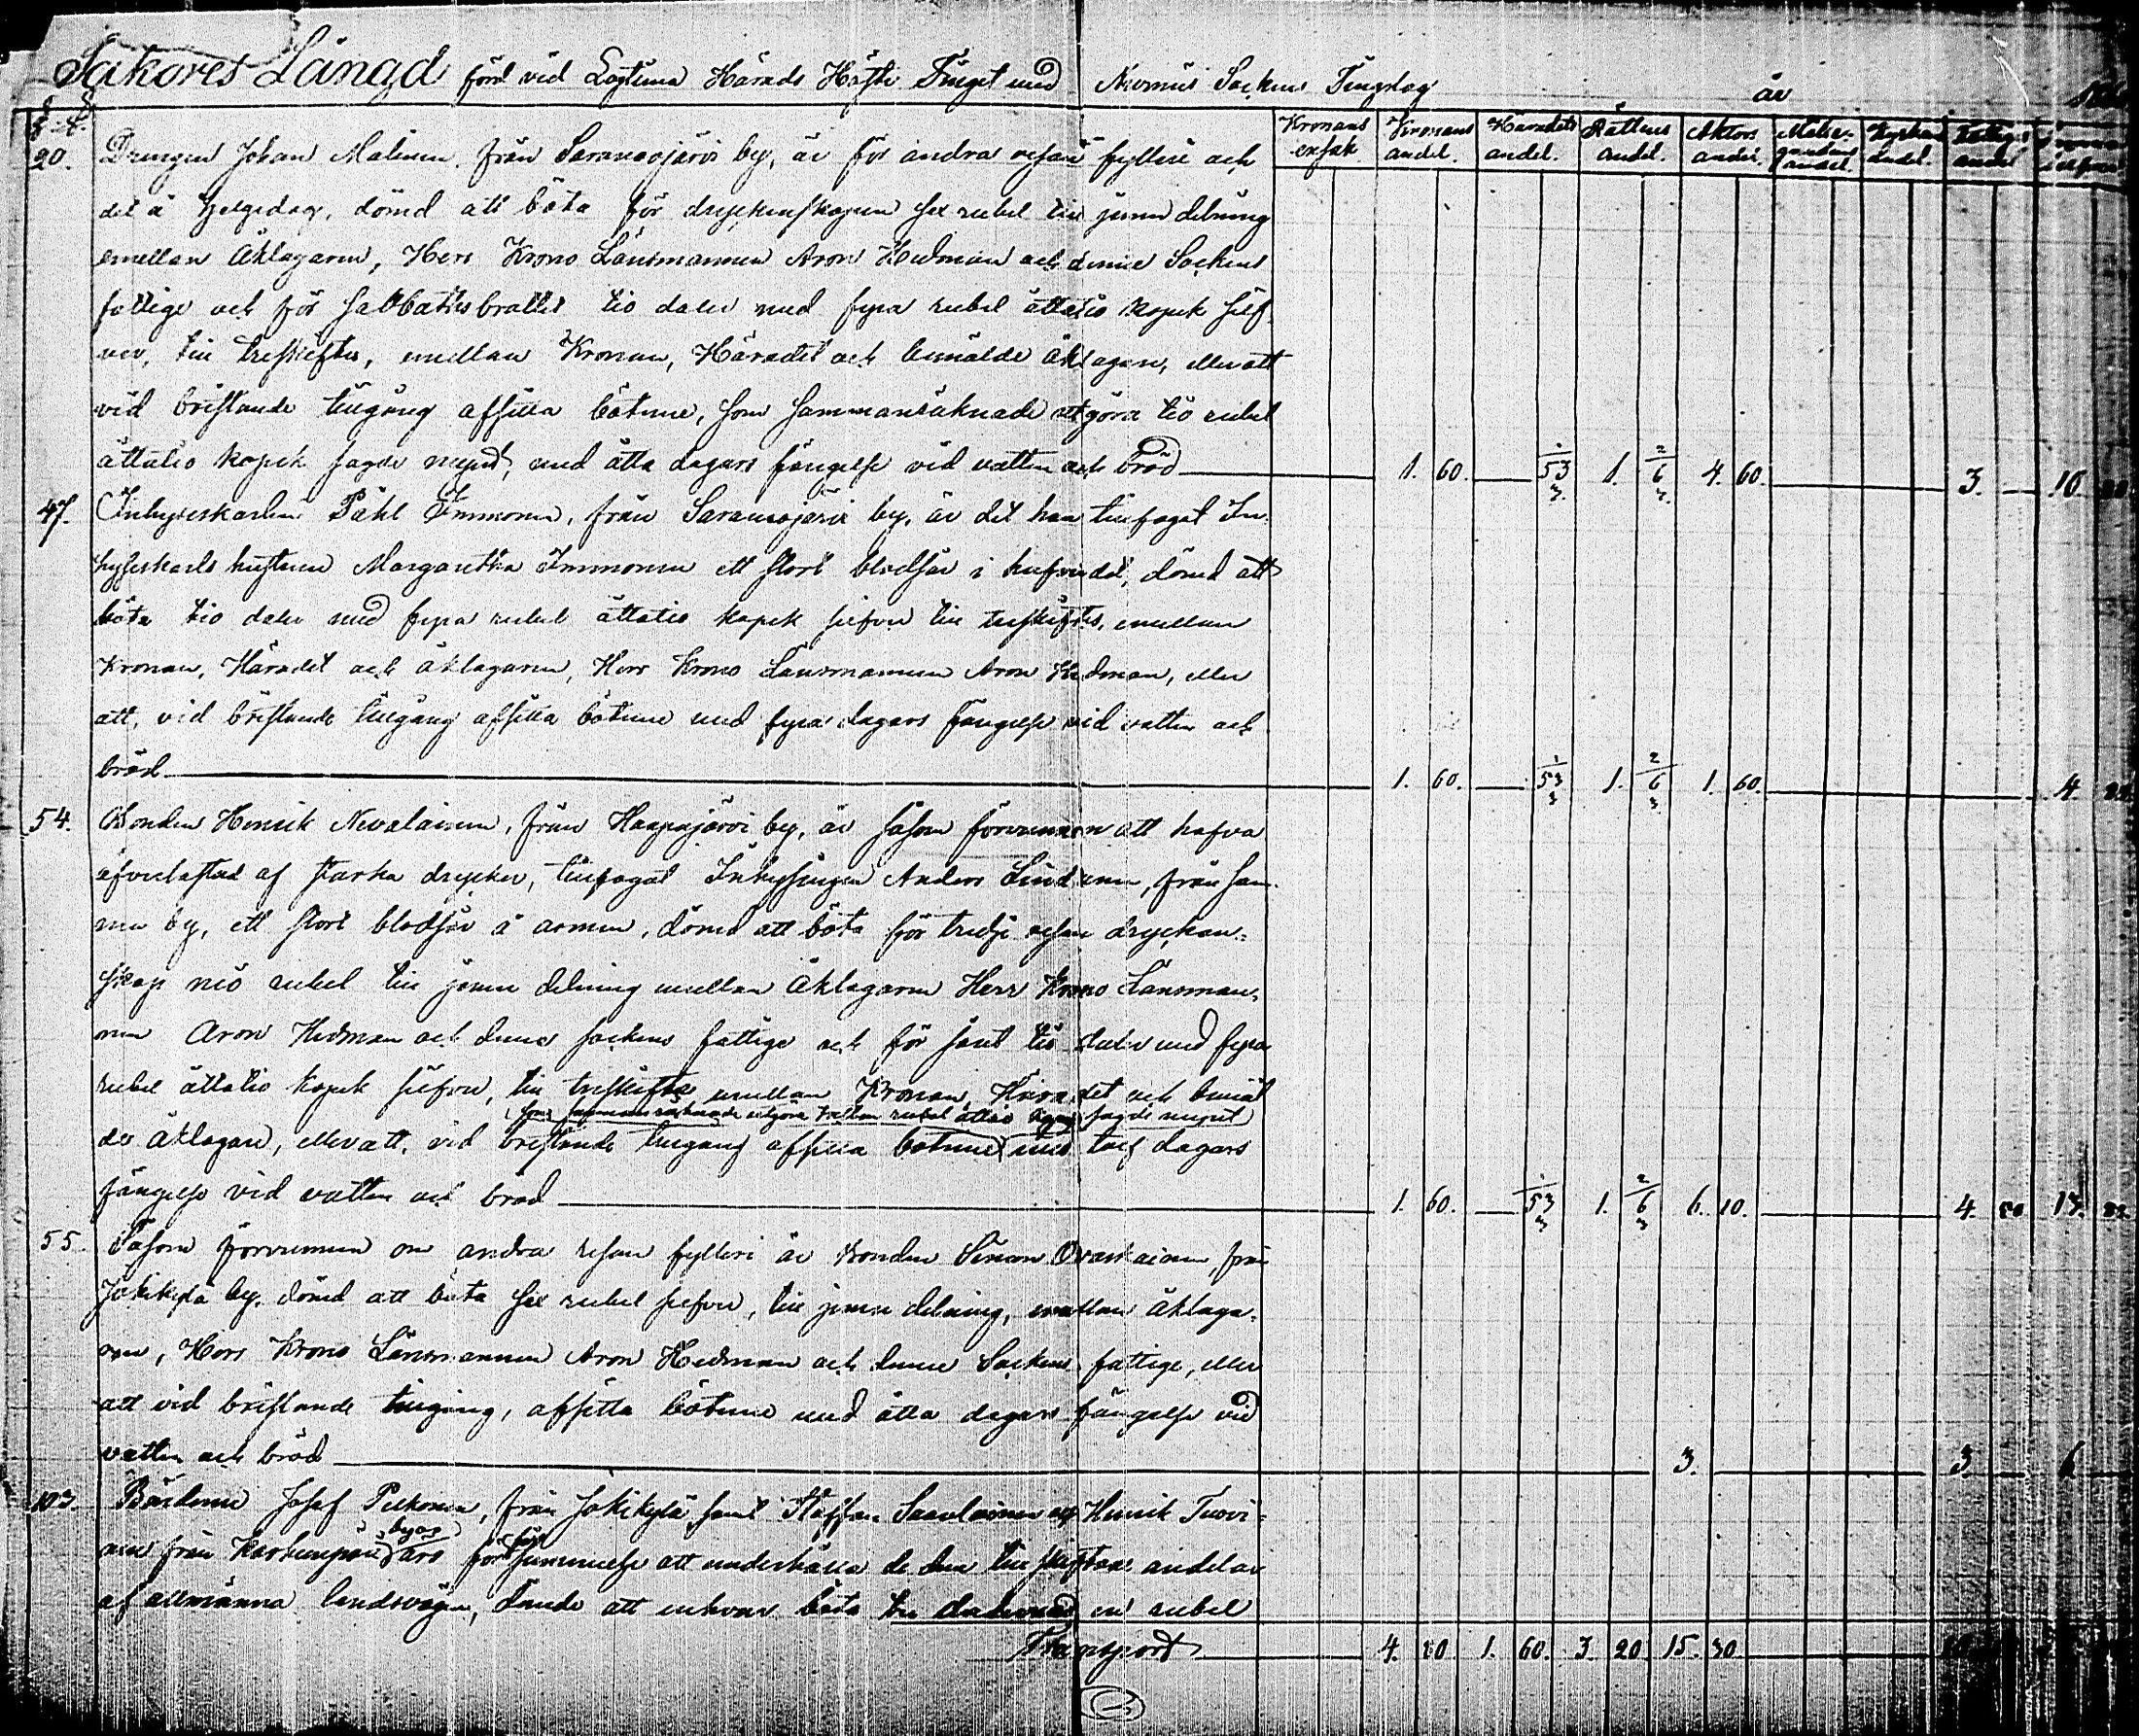 Saköres Längd förd vid Lagtima Härads Höste Tinget med Nurmis Sockens Tingslag år
§ §.
Kronans ensak Kronans andel. Häradets andel. Rättens andel. Aktors andel. Målsegandens andel. Kyrkans andel. Fattiges andel
20. Drängen Johan Malinen från Saramojärvi by, är för andra resan fylleri och
det å helgedag, dömd att böta för dryckenskapen sex rubel till jemn delning
emellan Åklagaren, Herr Krono Länsmannen Aron Hedman och denne Sockens
fattige och för sabbatsbrottet tio daler med fyra rubel åttatio kopek silf-
ver, till treskiftes, emellan Kronan, Häradet och bemälde åklagare, eller att
vid bristande tillgång afsitta böterne, som sammanräknade utgöra tio rubel
åttatio kopek sagde mynt, med åtta dagars fängelse vid vatten och bröd 1. 60. 53 1/3. 1. 6 2/3. 4. 60. 3. 10
47. Inhyseskarlen Påhl Immonen, från Saramojärvi by, är det han tillfogat In-
hyseskarls hustrun Margaretha Immonen ett stort blodsår i hufvudet, dömd att
böta tio daler med fyra rubel åttatio kopek silfver till treskiftes, emellan
Kronan, Häradet och åklagaren, Herr Krono Länsmannen Aron Hedman, eller
att, vid bristande tillgång afsitta böterne med fyra dagars fängelse vid vatten och
bröd 1. 60. 53 1/3 1. 6 2/3 1. 60. 4.
54. Bonden Henrik Nevalainen, från Haapajärvi by, är såsom förvunnen att hafva
öfverlastad af starka drycker, tillfogat Inhysingen Anders Lindunen, från sam-
ma by, ett stort blodsår å armen, dömd att böta för tredje resan drycken-
skap nio rubel till jemn delning emellan Åklagaren Herr Krono Länsman-
nen Aron Hedman och denne sockens fattige och för såret tio daler med fyra
rubel åttatio kopek silfver, till treskiftes emellan Kronan, Häradet och bemäl
(som sammanräknade utgöra tretton rubel åttatio kopek sagde mynt)
de åklagare, eller att, vid bristande tillgång afsitta böterne med tolf dagars
fängelse vid vatten och bröd 1. 60. 53 1/3 1. 6 2/3 6. 10. 4. 50 13.
55. Såsom förvunnen om andra resan fylleri är bonden Simon Ovaskainen, från
Jokikylä by, dömd att böta sex rubel silfver, till jemn delning, emellan åklaga-
ren, Herr Krono Länsmannen Aron Hedman och denne Sockens fattige, eller
att vid bristande tillgång, afsitta böterne med åtta dagars fängelse vid
vatten och bröd 3. 3. 6
103. Bönderne Josef Pulkonen, från Jokikylä samt Staffan Saavlainen och Henrik Turvi-
nen från byar äro för försummelse att underhålla de dem tillskiftade andelar
af allmänna landsvägen, dömde att enhvar böta tre daler med en rubel
Transport 4. 80 1. 60. 3. 20 15. 30